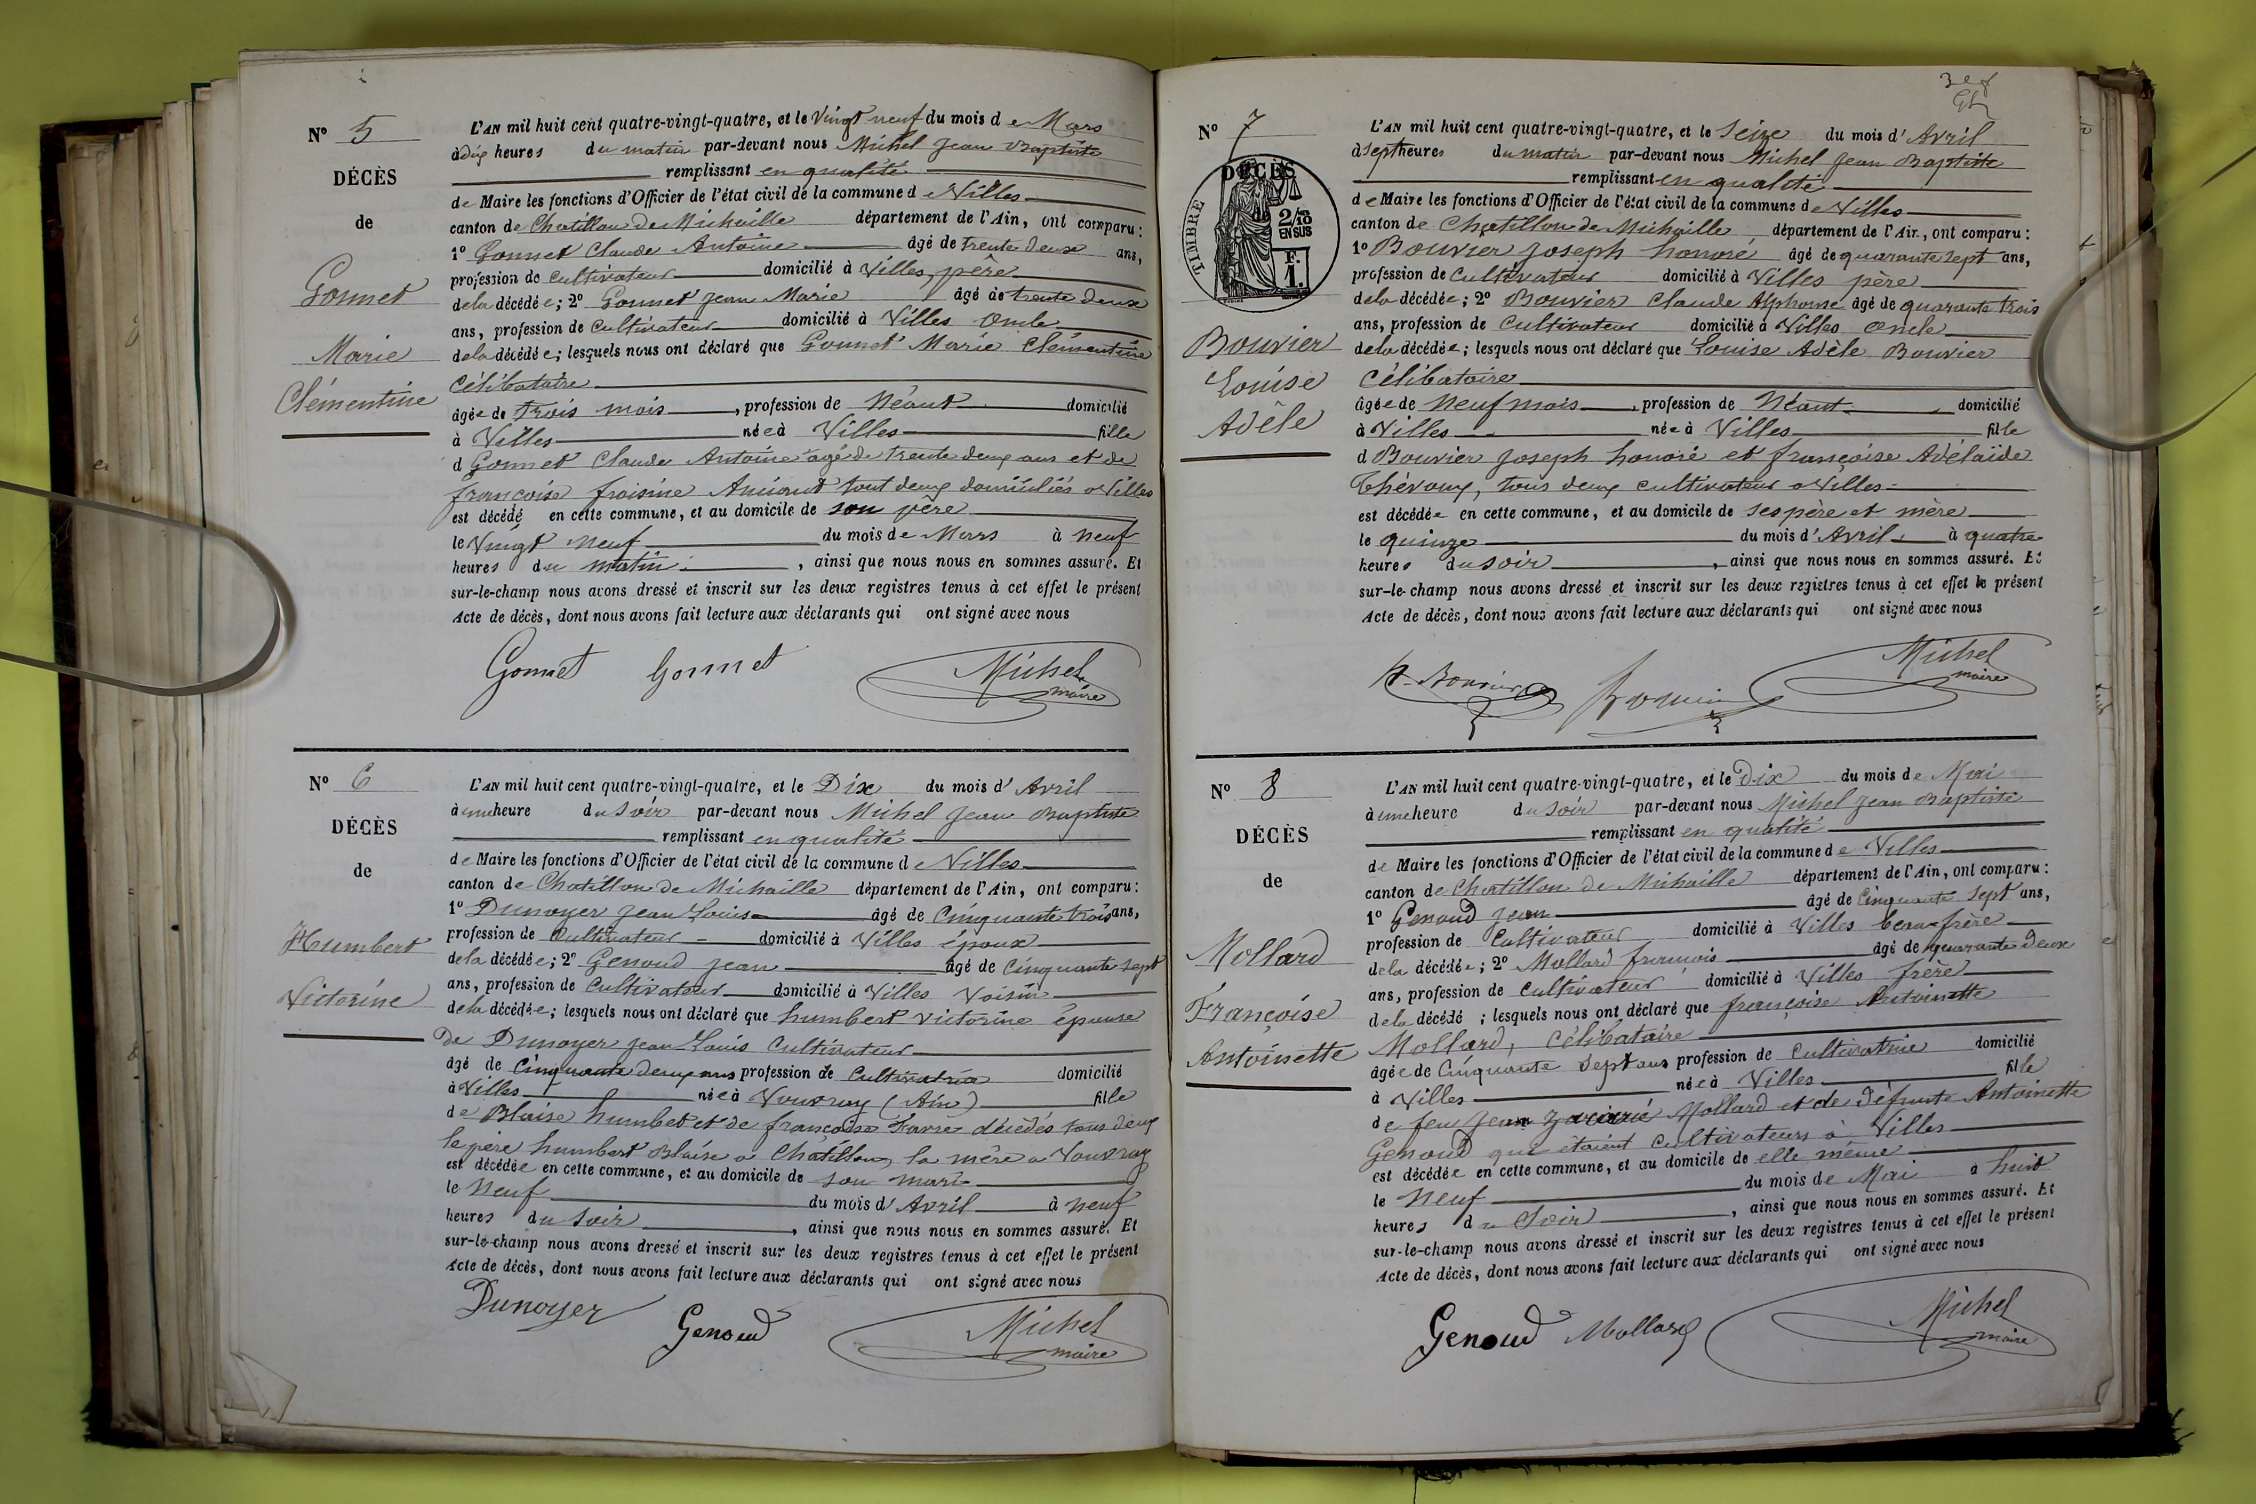 N° 5
DÉCÈS
de
Gonnet
Marie
Clémentine
L'AN mil huit cent quatre-vingt-quatre, et le Vingt neuf du mois de Mars
à dix heures du matin par-devant nous Michel Jean Baptiste
remplissant en qualité
de Maire les fonctions d'Officier de l'état civil de la commune de Villes
canton de Chatillon de Michaille département de l'Ain, ont comparu :
1° Gonnet Claude Antoine âgé de trente deux ans,
profession de cultivateur domicilié à Villes, père
de la décédée ; 2° Gonnet Jean Marie âgé de trente deux
ans, profession de cultivateur domicilié à Villes oncle
de la décédée ; lesquels nous ont déclaré que Gonnet Marie Clémentine
Célibataire
âgée de trois mois, profession de Néant domicilié
à Villes née à Villes fille
d Gonnet Claude Antoine agé de trente deux ans et de
françoise froisine tout deux domiciliés a Villes
est décédé en cette commune, et au domicile de son père
le Vingt neuf du mois de Mars à neuf
heures du matin, ainsi que nous nous en sommes assuré. Et
sur-le-champ nous avons dressé et inscrit sur les deux registres tenus à cet effet le présent
Acte de décès, dont nous avons fait lecture aux déclarants qui ont signé avec nous
Gonnet Gonnet Michel
maire
N° 6
DÉCÈS
de
Humbert
Victorine
L'AN mil huit cent quatre-vingt-quatre, et le Dix du mois d'Avril
à une heure du soir par-devant nous Michel Jean Baptiste
remplissant en qualité
de Maire les fonctions d'Officier de l'état civil de la commune de Villes
canton de Chatillon de Michaille département de l'Ain, ont comparu :
1° Dunoyer Jean Louis âgé de Cinquante trois ans,
profession de Cultivateur domicilié à Villes époux
de la décédée ; 2° Genoud Jean âgé de Cinquante sept
ans, profession de Cultivateur domicilié à Villes Voisin
de la décédée ; lesquels nous ont déclaré que humbert victorine épouse
De Dunoyer Jean Louis Cultivateur
agé de Cinquante deux ans profession de Cultivatrice domicilié
à Villes née à Vouvray (Ain) fille
de Blaise humbet et de françoise Favre décédés tous deux
le père humbert Blaise a Châtillon, la mère a Vouvray
est décédée en cette commune, et au domicile de son mari
le Neuf du mois d'Avril à neuf
heures du soir, ainsi que nous nous en sommes assuré. Et
sur-le-champ nous avons dressé et inscrit sur les deux registres tenus à cet effet le présent
Acte de décès, dont nous avons fait lecture aux déclarants qui ont signé avec nous
Dunoyer Genoud Michel
maire
N° 7
DÉCÈS
TIMBRE
2/10
EN SUS
F.
1.
Bouvier
Louise
Adèle
L'AN mil huit cent quatre-vingt-quatre, et le Seize du mois d'Avril
à sept heures du matin par-devant nous Michel Jean Baptiste
remplissant en qualité
de Maire les fonctions d'Officier de l'état civil de la commune de Villes
canton de Chatillon de Michaille département de l'Ain, ont comparu :
1° Bouvier Joseph honoré âgé de quarante sept ans,
profession de Cultivateur domicilié à Villes père
de la décédée ; 2° Bouvier Claude Alphonse âgé de quarante trois
ans, profession de Cultivateur domicilié à Villes oncle
de la décédée ; lesquels nous ont déclaré que Louise Adèle Bouvier
Célibataire
âgée de Neuf mois, profession de Néant, domicilié
à Villes née à Villes fille
d Bouvier Joseph honoré et françoise Adélaïde
tous deux cultivateur a Villes
est décédée en cette commune, et au domicile de ses père et mère
le quinze du mois d'Avril à quatre
heures du soir, ainsi que nous nous en sommes assuré. Et
sur-le-champ nous avons dressé et inscrit sur les deux registres tenus à cet effet le présent
Acte de décès, dont nous avons fait lecture aux déclarants qui ont signé avec nous
h. Bouvier Bouvier Michel
maire
N° 8
DÉCÈS
de
Mollard
Françoise
Antoinette
L'AN mil huit cent quatre-vingt-quatre, et le Dix du mois de Mai
à une heure du soir par-devant nous Michel Jean Baptiste
remplissant en qualité
de Maire les fonctions d'Officier de l'état civil de la commune de Villes
canton de Chatillon de Michaille département de l'Ain, ont comparu :
1° Genoud Jean âgé de Cinquante sept ans,
profession de Cultivateur domicilié à Villes beau-frère
de la décédée ; 2° Mollard françois âgé de quarante deux
ans, profession de cultivateur domicilié à Villes frère
de la décédé ; lesquels nous ont déclaré que françoise Antoinette
Mollard, célibataire
âgée de Cinquante Sept ans profession de Cultivatrice domicilié
à Villes née à Villes fille
de feu Jean Mollard et de défunte Antoinette
Genoud qui étaient cultivateurs à Villes
est décédée en cette commune, et au domicile de elle même
le Neuf du mois de Mai à huit
heures du Soir, ainsi que nous nous en sommes assuré. Et
sur-le-champ nous avons dressé et inscrit sur les deux registres tenus à cet effet le présent
Acte de décès, dont nous avons fait lecture aux déclarants qui ont signé avec nous
Genoud Mollard Michel
maire